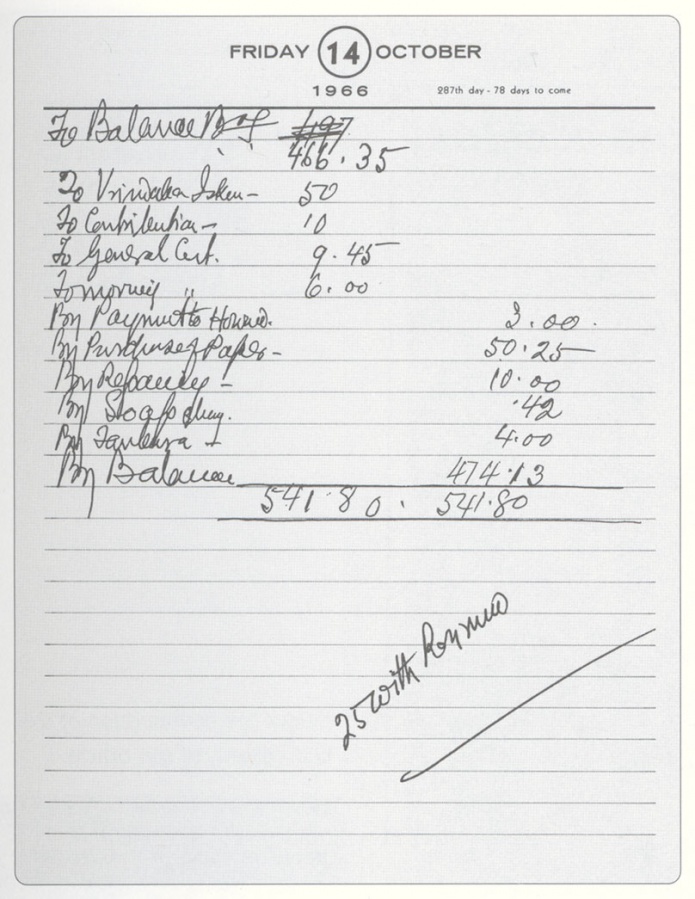 FRIDAY 14 OCTOBER
1966 287th day - 78 days to come
To Balance
466.35
To 50
To Contribution - 10
To General Cut. 9.45
To morning " 6.00
By Payment to 3.00
By Purchase of Paper - 50.25
By - 10.00
By .42
By - 4.00
By Balance 474.13
541.80. 541.80
25 with